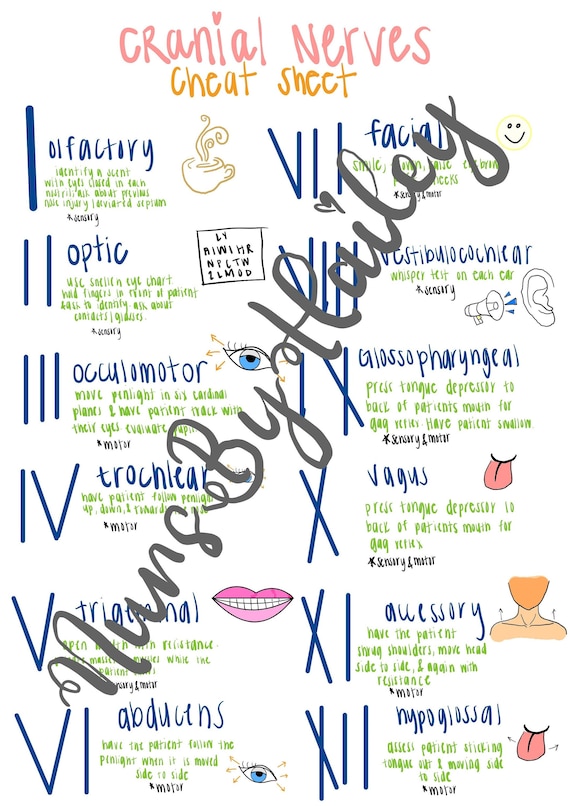 Cranial Nerves
Cheat Sheet
I olfactory
identify a scent
with eyes closed in each
nostril, ask about previous
nose injury/deviated septum
*sensory
II optic
LY
AIWIHR
NPLTW
ZLMOD
use snellen eye chart.
hold fingers in front of patient
& ask to identify. ask about
contacts/glasses.
*sensory
III occulomotor
move penlight in six cardinal
planes & have patient track with
their eyes evaluate
*motor
IV trochlear
have patient follow penlight
up, down, & towards
*motor
V trigeminal
open with resistance.
muscles while the
patient
sensory & motor
VI abducens
have the patient follow the
penlight when it is moved
side to side
*motor
VII facial
smile, frown, raise eyebrow
cheeks
*sensory & motor
VIII vestibulocochlear
whisper test on each ear
*sensory
IX Glossopharyngeal
press tongue depressor to
back of patients mouth for
gag reflex. Have patient swallow.
*sensory & motor
X vagus
press tongue depressor to
back of patients mouth for
gag reflex
*sensory & motor
XI accessory
have the patient
shrug shoulders, move head
side to side, & again with
resistance
*motor
XII hypoglossal
assess patient sticking
tongue out & moving side
to side
*motor
NursesByHailey